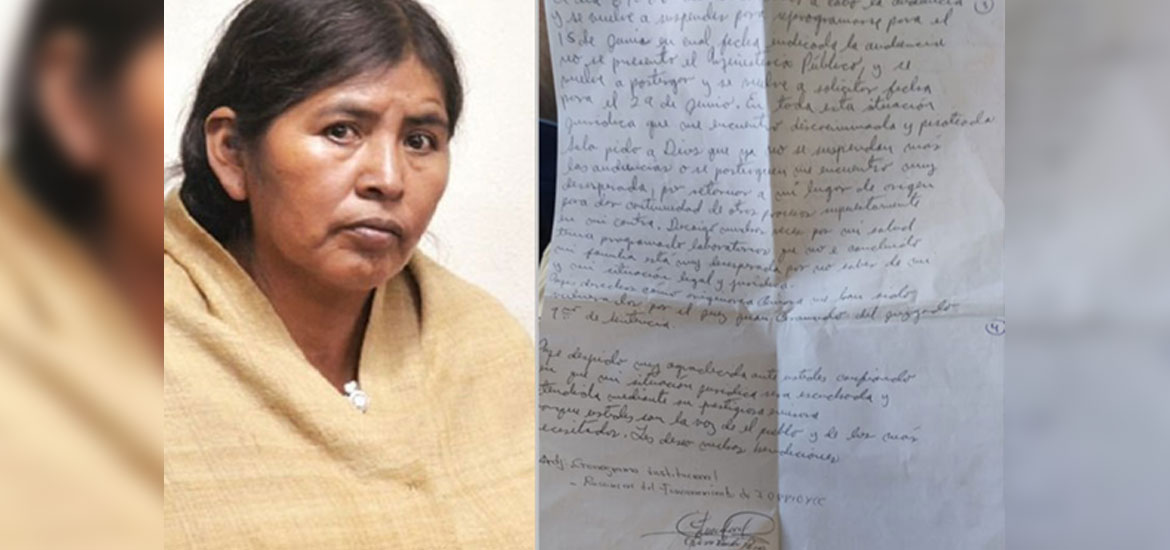 y se vuelve a suspender para reprogramarse para el
3
15 de Junio en cual fecha indicada la audiencia
no se presentó el Ministerio Público, y se
vuelve a postergar y se vuelve a solicitar fecha
para el 29 de Junio. En toda esta situación
Jurídica que me encuentro discriminada y pisoteada
Solo pido a Dios que ya no se suspendan más
las audiencias o se posterguen me encuentro muy
desesperada, por retornar a mi lugar de origen
para dar continuidad de otros procesos supuestamente
en mi contra. Decaigo muchas veces por mi salud
tenía programado laboratorios que no e concluido
mi familia está muy desesperada por no saber de mi
y mi situación legal y jurídica.
derechos como originaria han sido
vulnerados por el juez del juzgado
de Sentencia
4
despido muy agradecida ante ustedes confiando
en que mi situación jurídica sea escuchada y
mediante su prestigiosa emisora
porque ustedes son la voz de el pueblo y de los más
necesitados. Les deseo muchas bendiciones
Adj: Cronograma institucional
del funcionamiento de